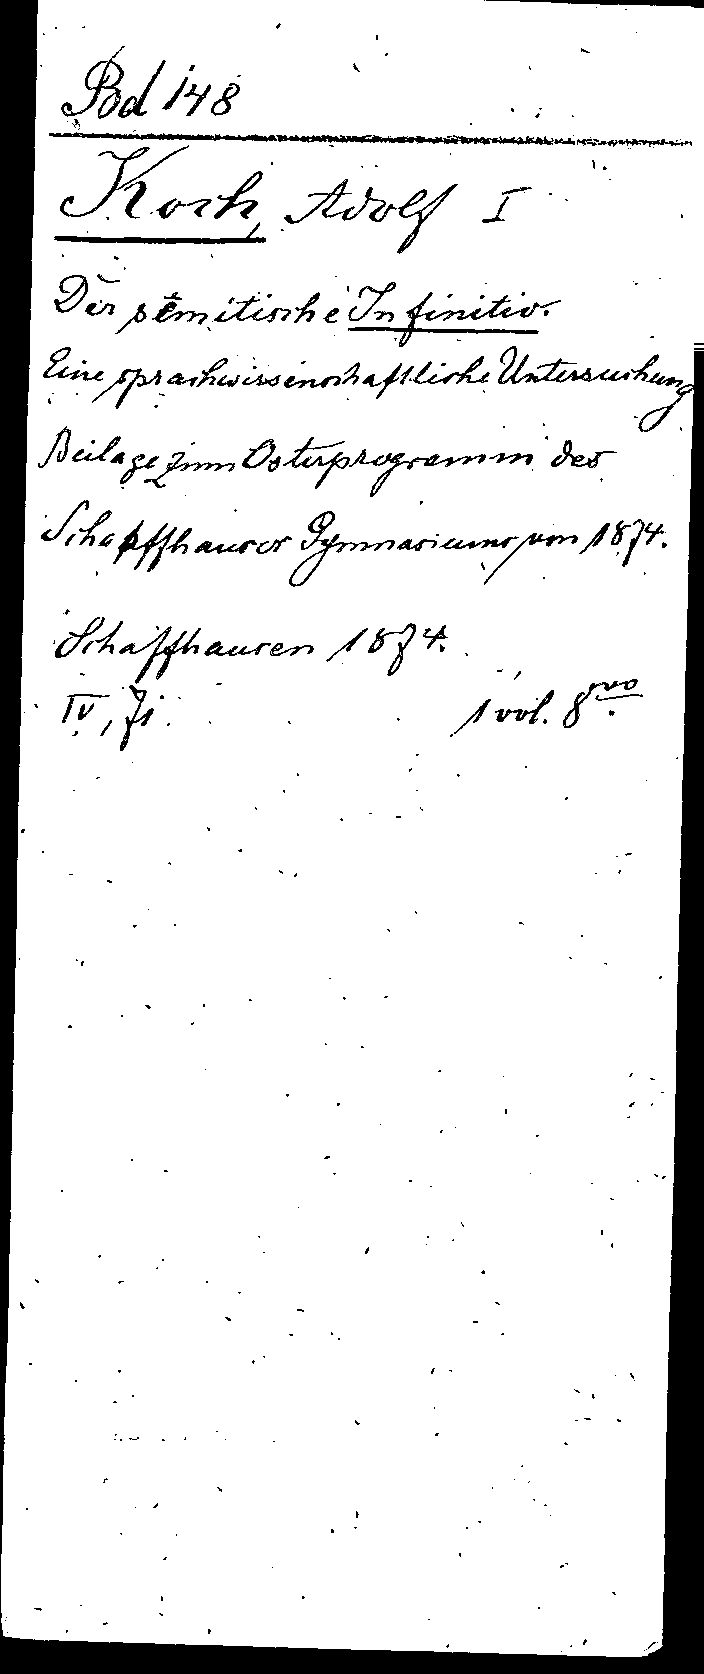 Bd 148
Koch, Adolf I
Der semitische Infinitiv.
Eine sprachwissenschaftliche Untersuchung
Beilage zum Osterprogramm des
Schaffhauser Gymnasiums von 1874.
Schaffhausen 1874.
IV, 71. 1 vol. 8vo.